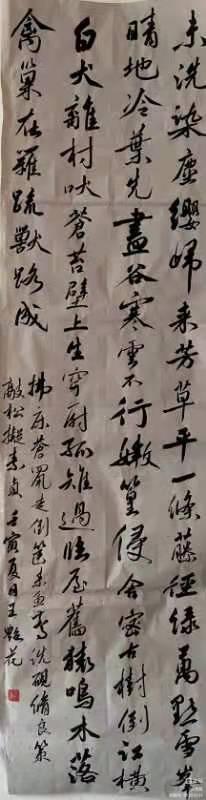 未洗染塵纓歸来芳草平一條藤徑緑萬點雪峰
晴地冷葉先盡谷寒雲不行嫩篁侵舍密古樹倒江橫
白犬離村吠蒼苔壁上生穿厨孤雉過臨屋舊猿鳴木落
禽巢在籬疏獸路成
拂床蒼鼠走倒篋素魚驚洗硯脩良策
敲松擬素貞 壬寅夏日王花